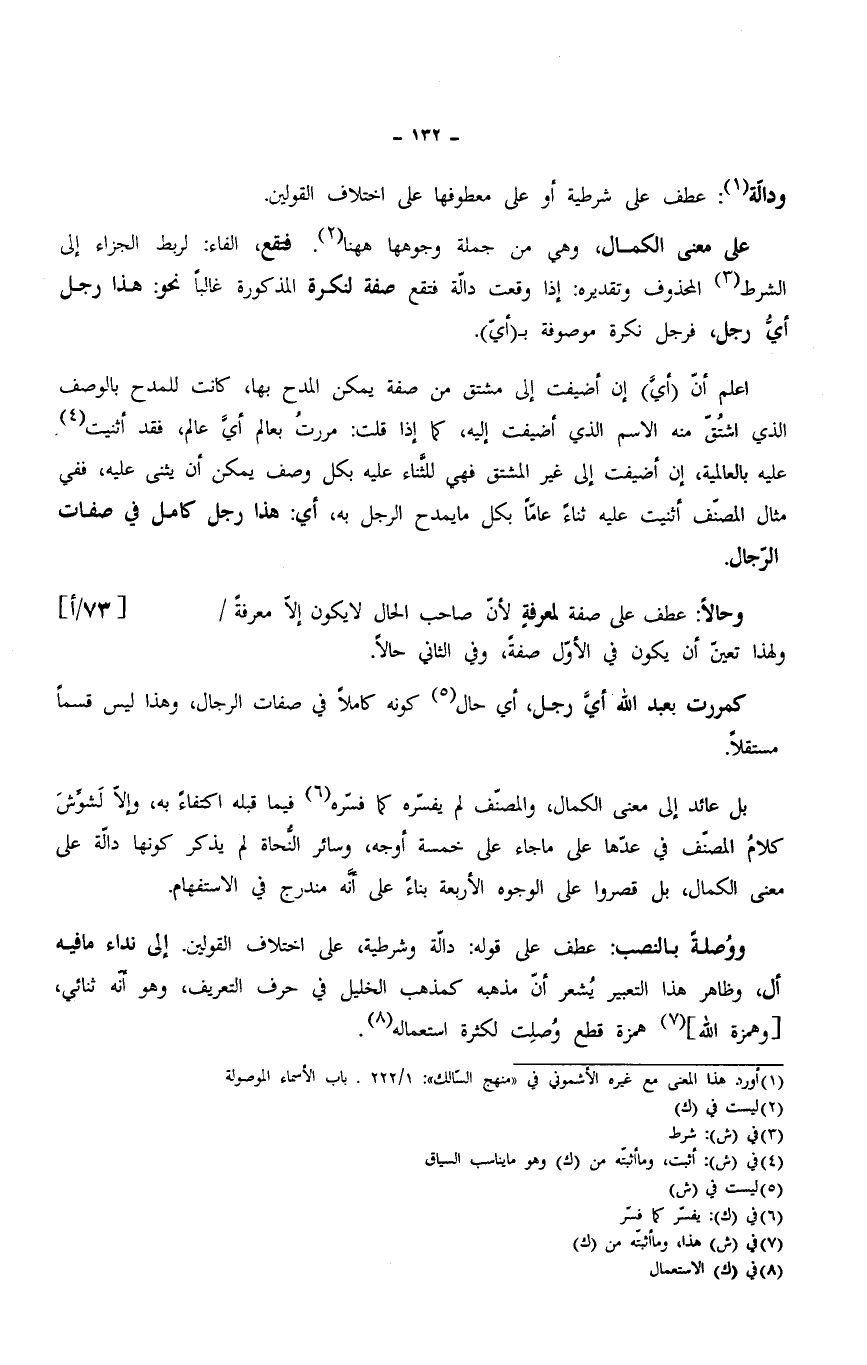 ـ ١٣٢ ـ
ودالّة(١): عطف على شرطية أو على معطوفها على اختلاف القولين.
على معنى الكمـال، وهي من جملة وجوهها ههنا(٢). فتقع، الفاء: لربط الجزاء إلى
الشرط(٣) المحذوف وتقديره: إذا وقعت دالّة فتقع صفة لنكرة المذكورة غالباً نحو: هـذا رجـل
أيُّ رجل، فرجل نكرة موصوفة بـ(أيّ).
اعلم أنّ (أيًّ) إن أضيفت إلى مشتق من صفة يمكن المدح بها، كانت للمدح بالوصف
الذي اشتُقّ منه الاسم الذي أضيفت إليه، كما إذا قلت: مررتُ بعالم أيَّ عالم، فقد أثنيت(٤).
عليه بالعالمية، إن أضيفت إلى غير المشتق فهي للثَّناء عليه بكل وصف يمكن أن يثنى عليه، ففي
مثال المصنّف أثنيت عليه ثناءً عامّاً بكل مايمدح الرجل به، أي: هذا رجل كامـل في صفـات
الرّجال.
وحالاً: عطف على صفة لمعرفةٍ لأنّ صاحب الحال لايكون إلاّ معرفةً / [٧٣/أ]
ولهذا تعينّ أن يكون في الأوّل صفةً، وفي الثاني حالاً.
كمررت بعبد الله أيَّ رجـل، أي حال(٥) كونه كاملاً في صفات الرجال، وهذا ليس قسماً
مستقلاً.
بل عائد إلى معنى الكمال، والمصنّف لم يفسّره كما فسّره(٦) فيما قبله اكتفاءً به، وإلاّ لَشوِّشَ
كلامُ المصنّف في عدّها على ماجاء على خمسة أوجه، وسائر النُّحاة لم يذكر كونها دالّة على
معنى الكمال، بل قصروا على الوجوه الأربعة بناءً على أنَّه مندرج في الاستفهام.
ووُصلةً بـالنصب: عطف على قوله: دالّة وشرطية، على اختلاف القولين. إلى نداء مافيـه
أل، وظاهر هذا التعبير يُشعر أنّ مذهبه كمذهب الخليل في حرف التعريف، وهو أنّه ثنائي،
[وهمزة الله](٧) همزة قطع وُصلِت لكثرة استعماله(٨).
(١)أورد هذا المعنى مع غيره الأشموني في «منهج السّالك»: ٢٢٢/١ . باب الأسماء الموصولة
(٢)ليست في (ك)
(٣)في (ش): شرط
(٤)في (ش): أثبت، وماأثبتّه من (ك) وهو مايناسب السياق
(٥)ليست في (ش)
(٦)في (ك): يفسّر كما فسّر
(٧)في (ش) هذا، وماأثبتّه من (ك)
(٨)في (ك) الاستعمال